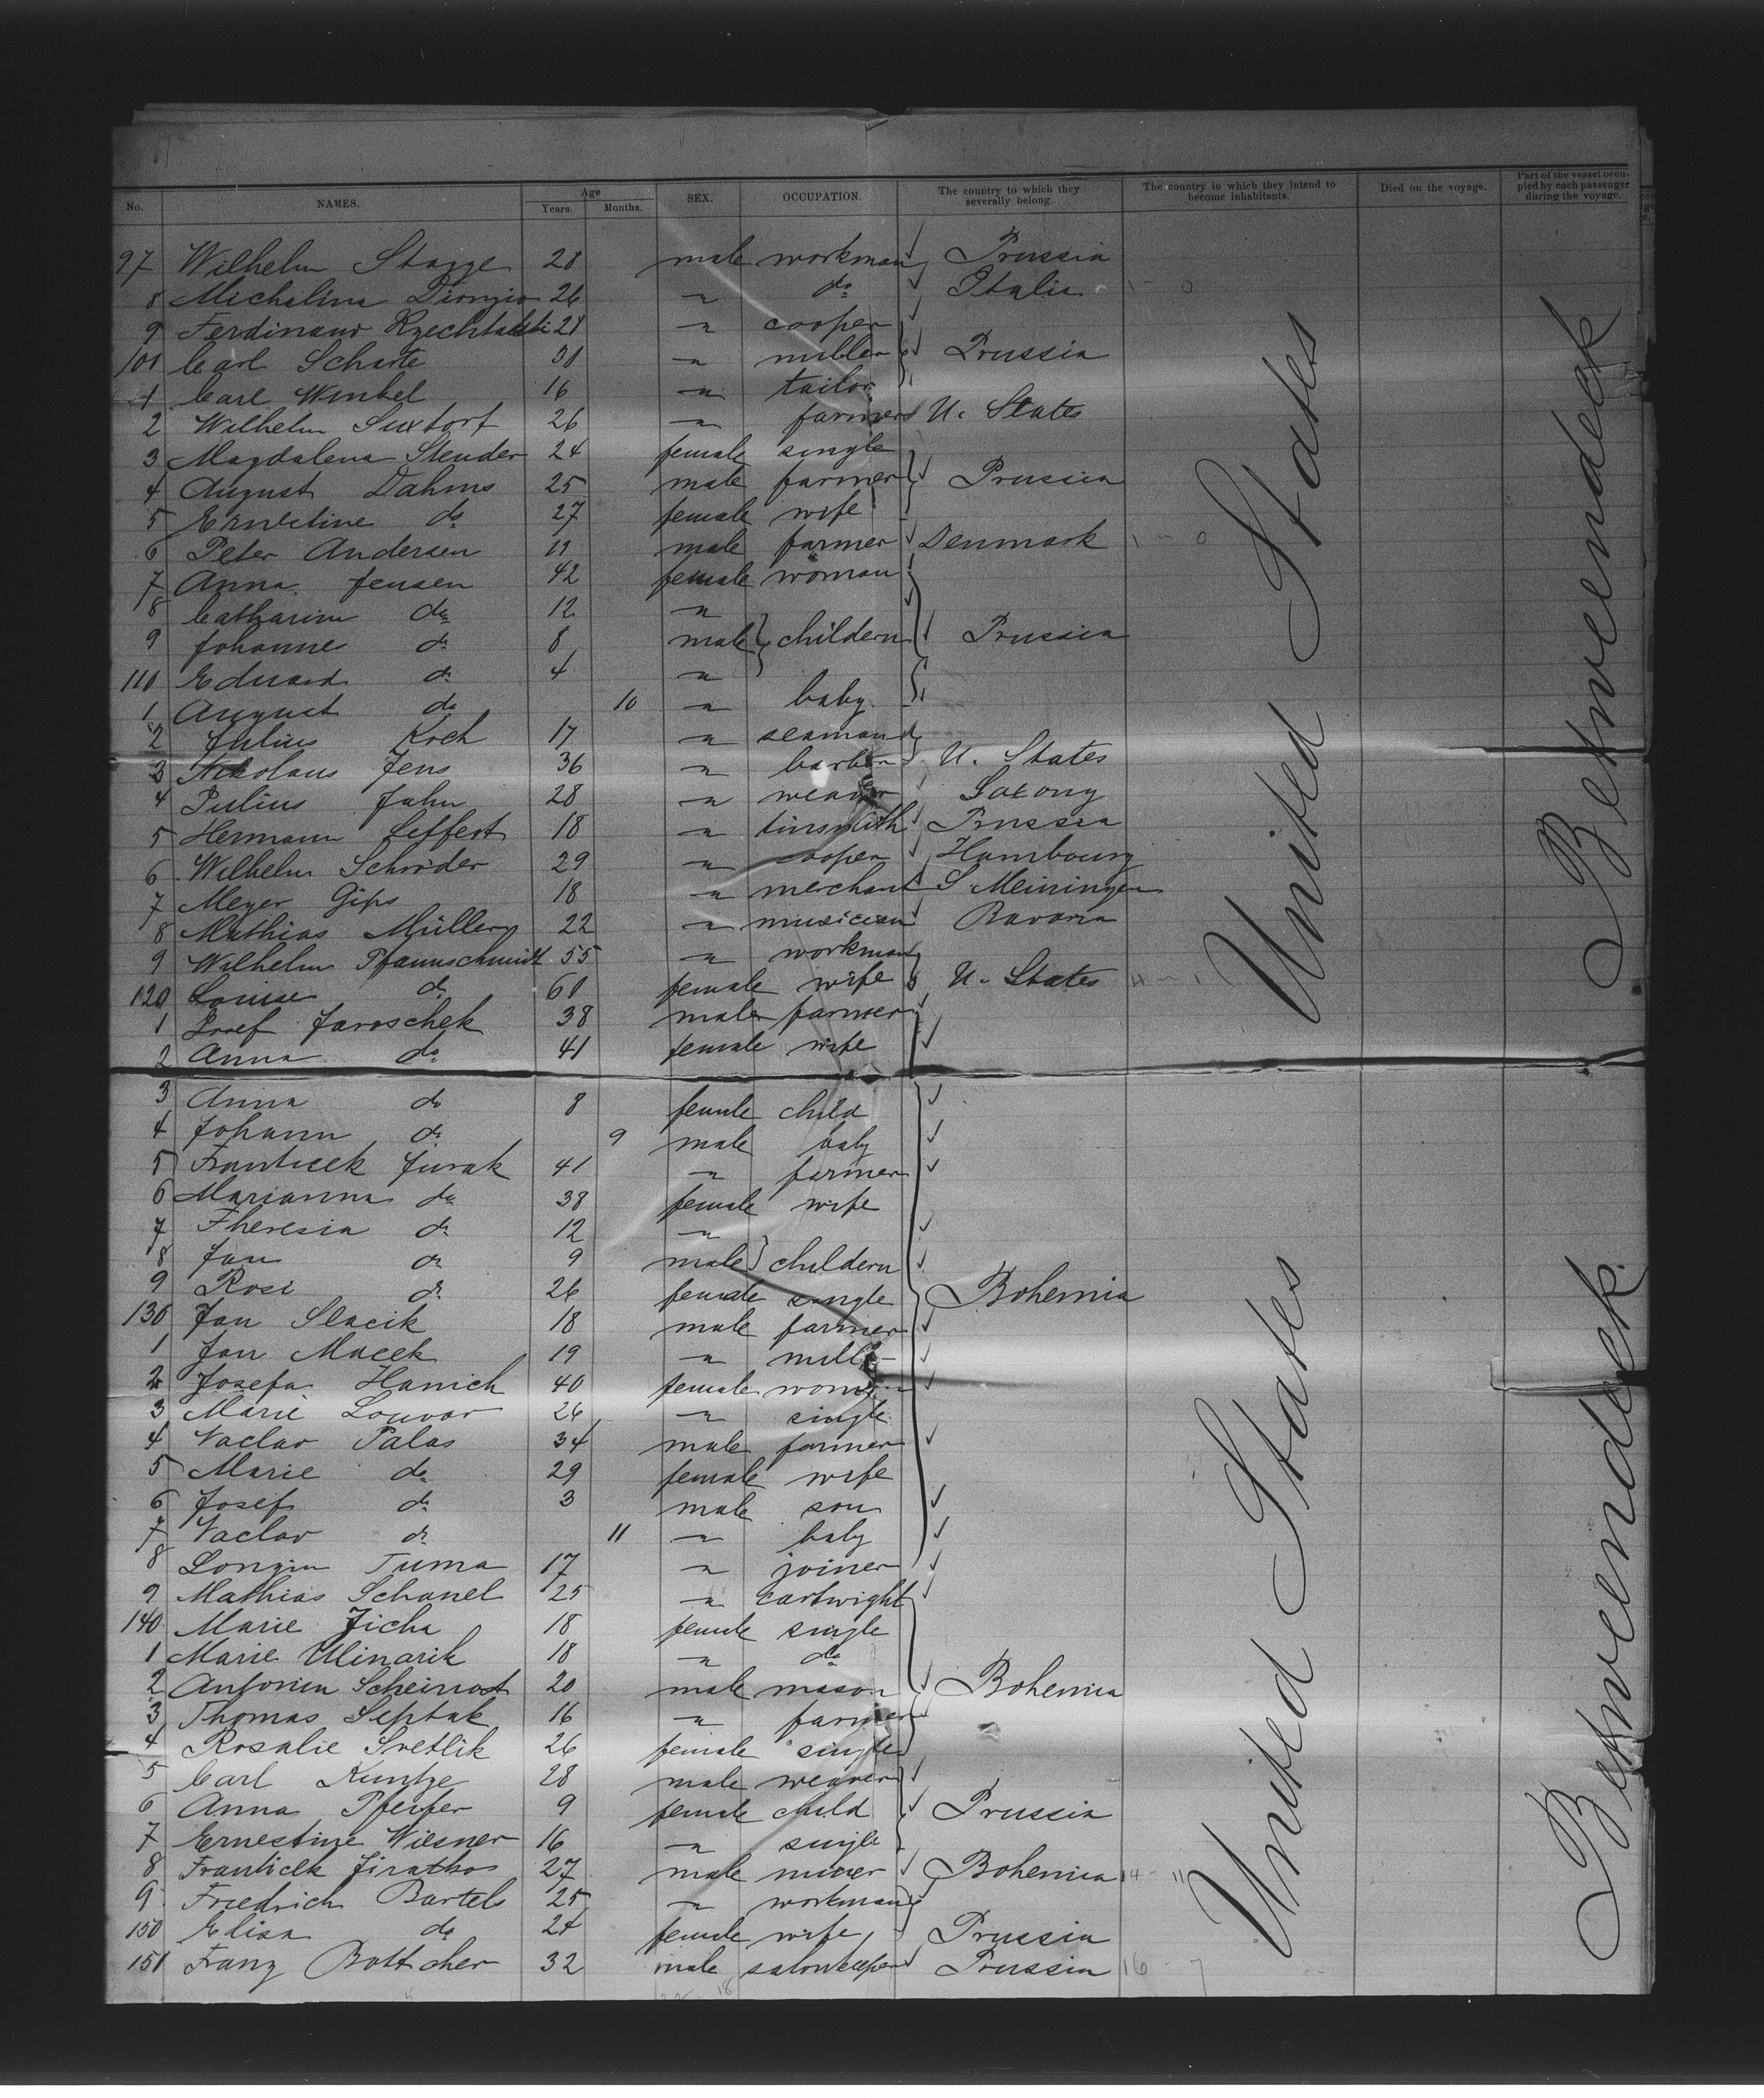 No. NAMES. Age Years. Months. SEX. OCCUPATION. The country to which they severally belong. The country in which they intend to become inhabitants. Died on the voyage. Part of the vessel occupied by each passenger during the voyage.
97 Wilhelm Stagge 28 male workman Prussia
8 Michalina Dionzio 26 " do Italia
9 Ferdinand 28 " cooper
100 Carl Scharte 31 " miller Prussia
1 Carl Winkel 16 " tailor
2 Wilhelm Suxtorf 26 " farmer U. States
3 Magdalena Steuder 24 female single
4 August Dahms 25 male farmer Prussia
5 Ernestine do 27 female wife
6 Peter Andersen 19 male farmer Denmark
7 Anna Jensen 42 female woman
8 Catharina do 12 "
9 Johannes do 8 male childern Prussia
110 Eduard do 4 "
1 August do 10 " baby
2 Julius Koch 17 " seaman
3 Nikolaus Jens 36 " barber U. States
4 Julius Jahn 28 " weaver Saxony
5 Hermann Seffert 18 " tinsmith Prussia
6 Wilhelm Schröder 29 " cooper Hambourg
7 Meyer Gips 18 " merchant S Meiningen
8 Mathias Müller 22 " musician Bavaria
9 Wilhelm Pfannschmidt 55 " workman
120 Louise do 60 female wife U. States
1 Josef Jaroschek 38 male farmer
2 Anna do 41 female wife
3 Anna do 8 female child
4 Johann do 9 male baby
5 Franticek Jurak 41 " farmer
6 Marianna do 38 female wife
7 Theresia do 12 "
8 Jan do 9 male childern
9 Rosi do 26 female single Bohemia
130 Jan Slacik 18 male farmer
1 Jan Macek 19 " miller
2 Josefa Hanich 40 female woman
3 Marie Louvar 26 " single
4 Vaclav Palas 34 male farmer
5 Marie do 29 female wife
6 Josef do 3 male son
7 Vaclav do 11 " baby
8 Longin Tuma 17 " joiner
9 Mathias Schanel 25 " cartwright
140 Marie Jicha 18 female single
1 Marie Mlinarik 18 " do
2 Antonin Scheinost 20 male mason Bohemia
3 Thomas Septak 16 " farmer
4 Rosalie Svetlik 26 female single
5 Carl Kuntze 28 male weaver
6 Anna Pfeifer 9 female child Prussia
7 Ernestine Wiesner 16 " single
8 Franticek 27 male miner Bohemia
9 Friedrich Bartels 25 " workman
150 Elisa do 24 female wife Prussia
151 Franz Bottcher 32 male salonkeeper Prussia
United States
Betweendeck
United States
Betweendeck